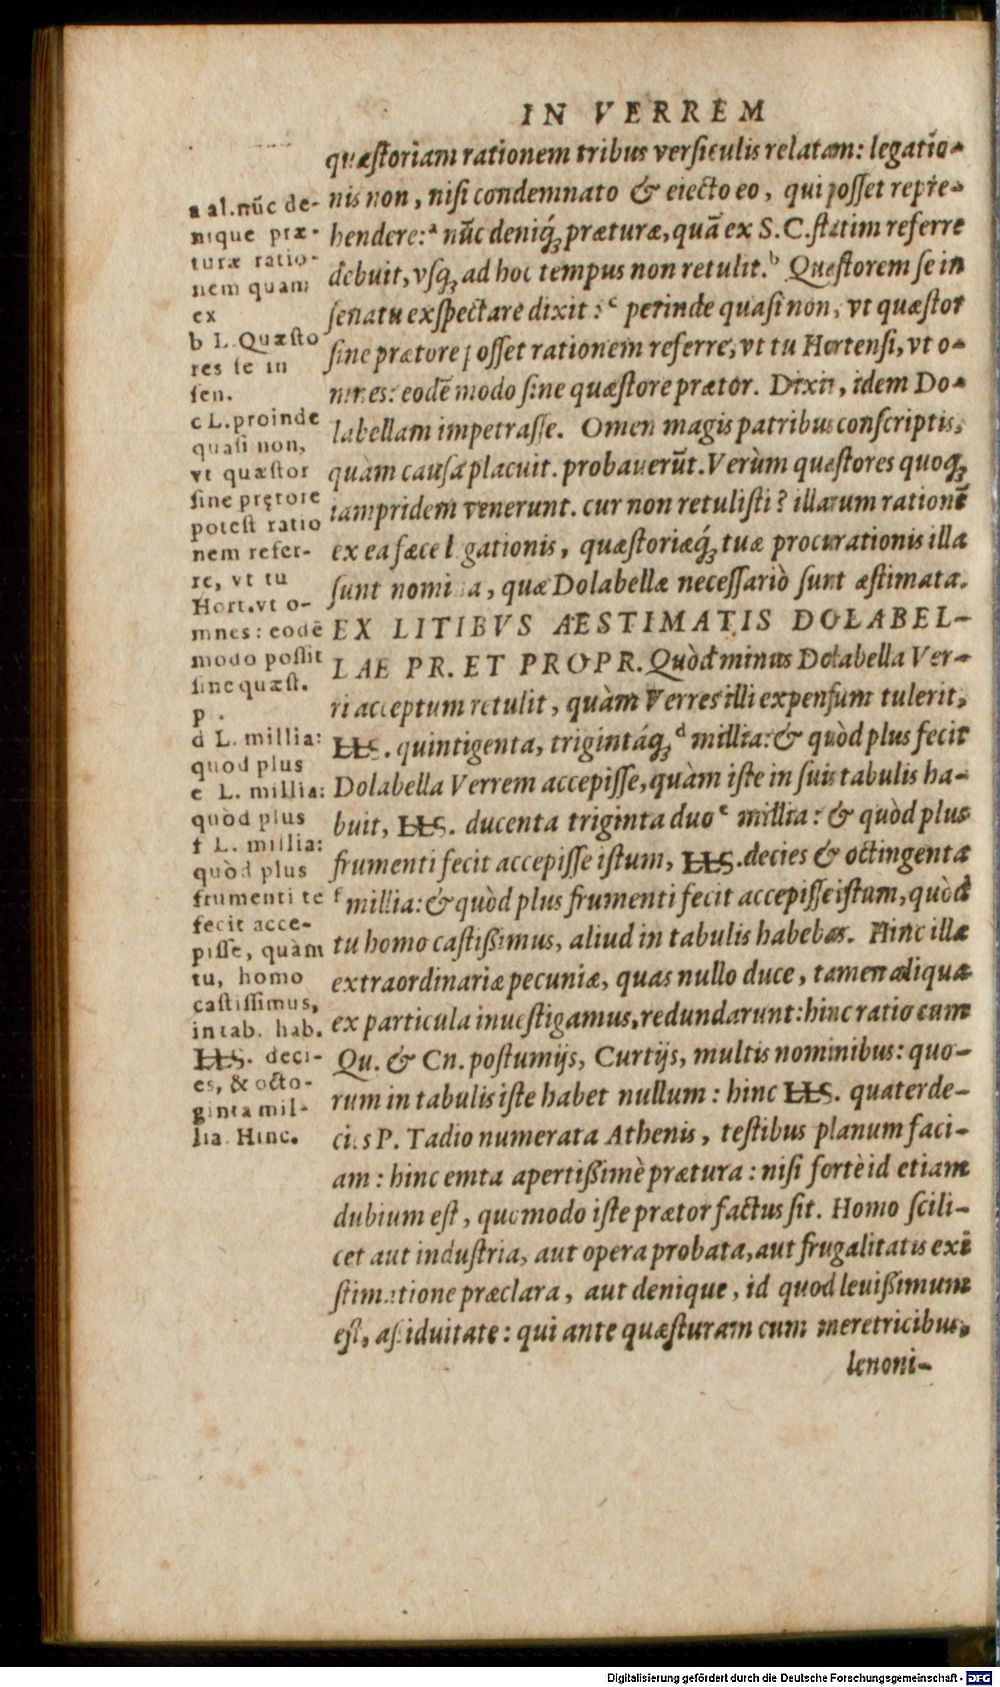 IN VERREM
quæstoriam rationem tribus versiculis relatam: legatio-
nis non, nisi condemnato & eiecto eo, qui posset repre-
hendere:ᵃ nūc deniq́; præturæ, quā ex S. C. statim referre
debuit, vsq; ad hoc tempus non retulit.ᵇ Quæstorem se in
senatu exspectare dixit:ᶜ perinde quasi non, vt quæstor
sine prætore posset rationem referre, vt tu Hortensi, vt o-
mnes: eodē modo sine quæstore prætor. Dixit, idem Do-
labellam impetrasse. Omen magis patribus conscriptis,
quàm causa placuit. probauerūt. Verùm quæstores quoq;
iampridem venerunt. cur non retulisti? illarum rationē
ex ea fæce legationis, quæstoriæq́; tuæ procurationis illa
sunt nomina, quæ Dolabellæ necessariò sunt æstimata.
EX LITIBVS AESTIMATIS DOLABEL-
LAE PR. ET PROPR. Quòd minus Dolabella Ver-
ri acceptum retulit, quàm Verres illi expensum tulerit,
LLS. quintigenta, trigintáq; ᵈ millia: & quòd plus fecit
Dolabella Verrem accepisse, quàm iste in suis tabulis ha-
buit, LLS. ducenta triginta duo ᵉ millia: & quòd plus
frumenti fecit accepisse istum, LLS. decies & octingenta
ᶠ millia: & quòd plus frumenti fecit accepisse istum, quòd
tu homo castißimus, aliud in tabulis habebas. Hinc illæ
extraordinariæ pecuniæ, quas nullo duce, tamen aliqua
ex particula inuestigamus, redundarunt: hinc ratio cum
Qu. & Cn. postumijs, Curtijs, multis nominibus: quo-
rum in tabulis iste habet nullum: hinc LLS. quaterde-
cies P. Tadio numerata Athenis, testibus planum faci-
am: hinc emta apertißimè prætura: nisi fortè id etiam
dubium est, quomodo iste prætor factus sit. Homo scili-
cet aut industria, aut opera probata, aut frugalitatis exi
stimatione præclara, aut denique, id quod leuißimum
est, aßiduitate: qui ante quæsturam cum meretricibus,
lenoni-
a al. nūc de-
nique præ-
turæ ratio-
nem quam
ex
b L. Quæsto
res se in
sen.
c L. proinde
quasi non,
vt quæstor
sine prętore
potest ratio
nem refer-
re, vt tu
Hort. vt o-
mnes: eodē
modo possit
sine quæst.
p .
d L. millia:
quod plus
e L. millia:
quòd plus
f L. millia:
quòd plus
frumenti te
fecit acce-
pisse, quàm
tu, homo
castissimus,
in tab. hab.
LLS. deci-
es, & octo-
ginta mil-
lia. Hinc.
Digitalisierung gefördert durch die Deutsche Forschungsgemeinschaft - DFG